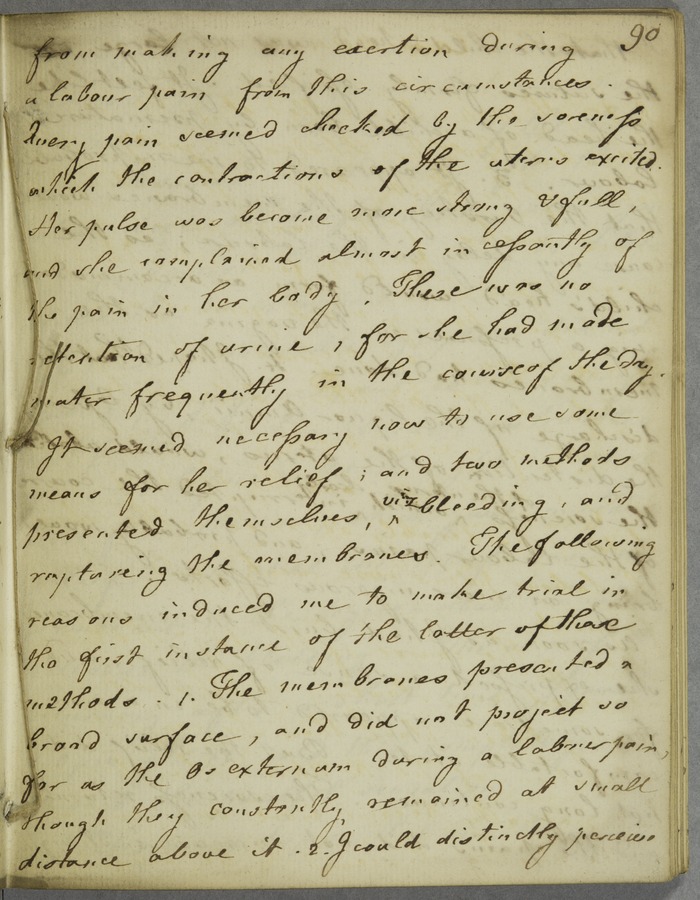 90
from making any exertion during
a labour pain from this circumstances.
Every pain seemed checked by the soreness
which the contractions of the uterus excited.
Her pulse was become more strong & full,
and she complained almost incessantly of
the pain in her body. There was no
retention of urine, for she had made
water frequently in the course of the day.
It seemed necessary now to use some
means for her relief; and two methods
presented themselves, viz bleeding, and
rupturing the membranes. The following
reasons induced me to make trial in
the first instance of the latter of these
methods. 1. The membranes presented a
broad surface, and did not project so
far as the Os externum during a labour pain,
though they constantly remained at small
distance above it. 2. I could distinctly perceive